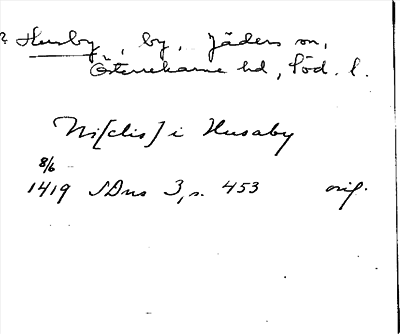 ? Husby, by, Jäders sn,
Österrekarne hd, Söd. l.
Ni[clis] i Husaby
8/6
1419 SDns 3, s. 453 orig.